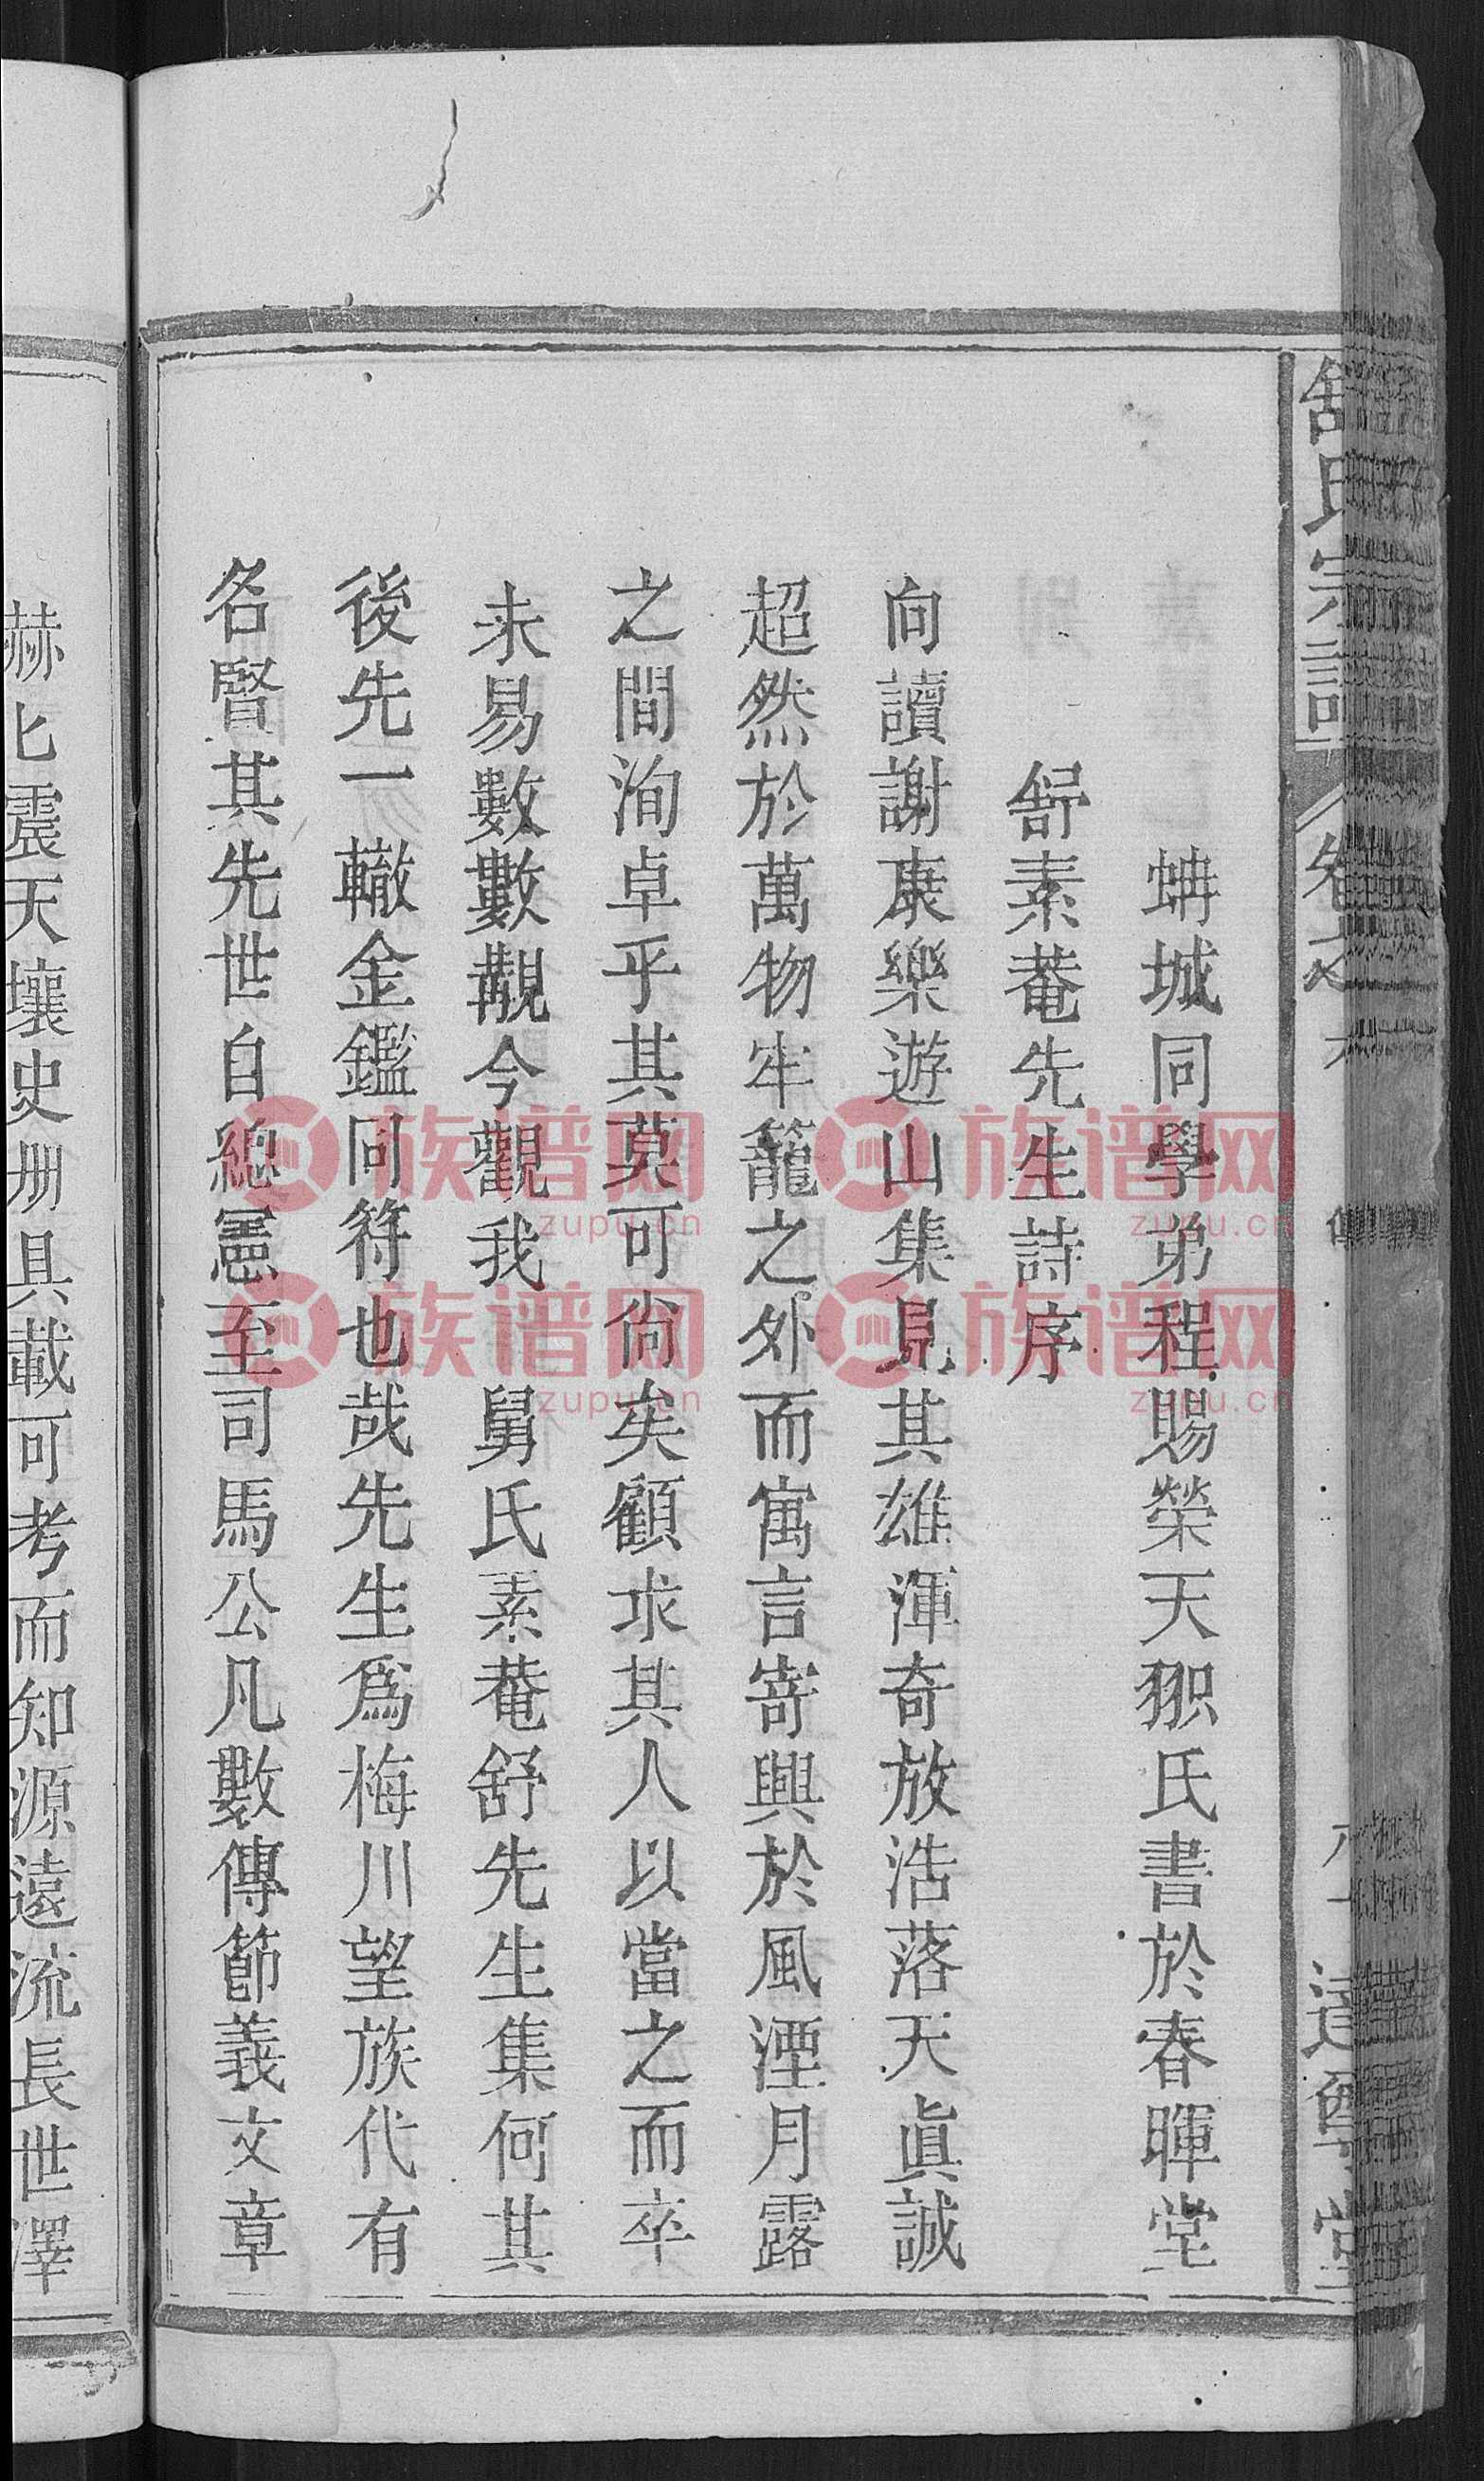 舒氏宗譜
卷之
蚺城同學弟程賜榮天翀氏書於春暉堂
舒素菴先生詩序
向讀謝康樂遊山集見其雄渾奇放浩落天眞誠
超然於萬物牢籠之外而寓言寄興於風湮月露
之間洵卓乎其莫可尙矣顧求其人以當之而卒
未易數數覯今觀我舅氏素菴舒先生集何其
後先一轍金鑑同符也哉先生爲梅川望族代有
名賢其先世自總憲至司馬公凡數傳節義文章
赫匕震天壤史册具載可考而知源遠流長世澤
族谱网
zupu.cn
族谱网
zupu.cn
族谱网
zupu.cn
族谱网
zupu.cn